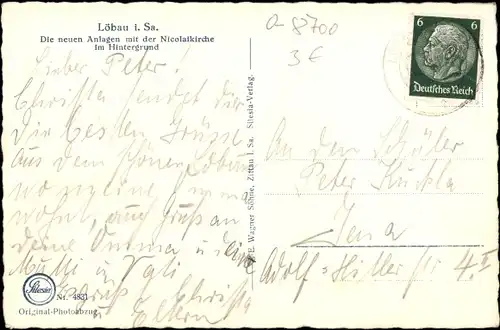 Löbau i. Sa.
Die neuen Anlagen mit der Nicolaikirche
im Hintergrund
a 8700
3€
6 6
Deutsches Reich
Lieber Peter!
Christa sendet dir
die besten Grüsse
aus dem schönen Löbau
wo meine
wohnt, auch Gruß an
deine Omma u. deine
Mutti u. Vati
Christa
Eltern
E. Wagner Söhne, Zittau i. Sa. Silesia-Verlag.
An den Schüler
Peter
Jena
Adolf-Hitler Str 4.II
Silesia
Nr. 4831
Original-Photoabzug